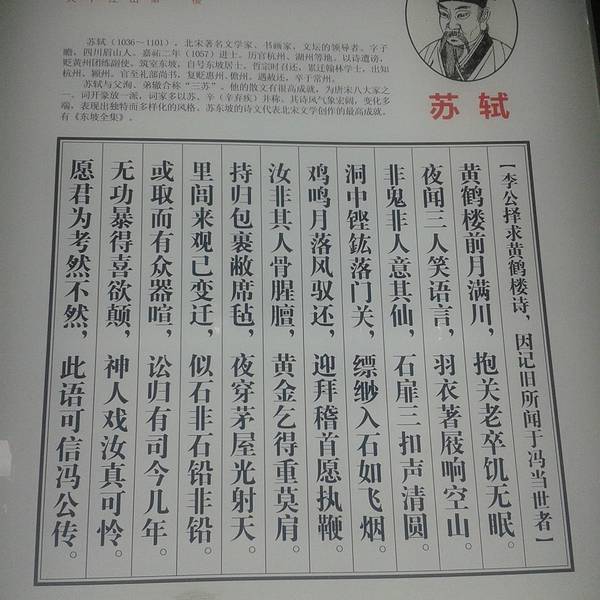 苏轼（1036～1101），北宋著名文学家、书画家，文坛的领导者。字子
瞻，四川眉山人。嘉祐二年（1057）进士。历官杭州、湖州等地。以诗遭谤，
贬黄州团练副使。筑室东坡，自号东坡居士。哲宗时召还，累迁翰林学士，出知
杭州、颍州。官至礼部尚书。复贬惠州、儋州。遇赦还，卒于常州。
苏轼与父洵、弟辙合称“三苏”。他的散文有很高成就，为唐宋八大家之
一。词开豪放一派，词家多以苏、辛（辛弃疾）并称。其诗风气象宏阔，变化多
端，表现出独特而多样化的风格。苏东坡的诗文代表北宋文学创作的最高成就，
有《东坡全集》。
苏轼
【李公择求黄鹤楼诗，因记旧所闻于冯当世者】
黄鹤楼前月满川，抱关老卒饥无眠。
夜闻三人笑语言，羽衣著屐响空山。
非鬼非人意其仙，石扉三扣声清圆。
洞中铿鈜落门关，缥缈入石如飞烟。
鸡鸣月落风驭还，迎拜稽首愿执鞭。
汝非其人骨腥膻，黄金乞得重莫肩。
持归包裹敝席毡，夜穿茅屋光射天。
里闾来观已变迁，似石非石铅非铅。
或取而有众器喧，讼归有司今几年。
无功暴得喜欲颠，神人戏汝真可怜。
愿君为考然不然，此语可信冯公传。